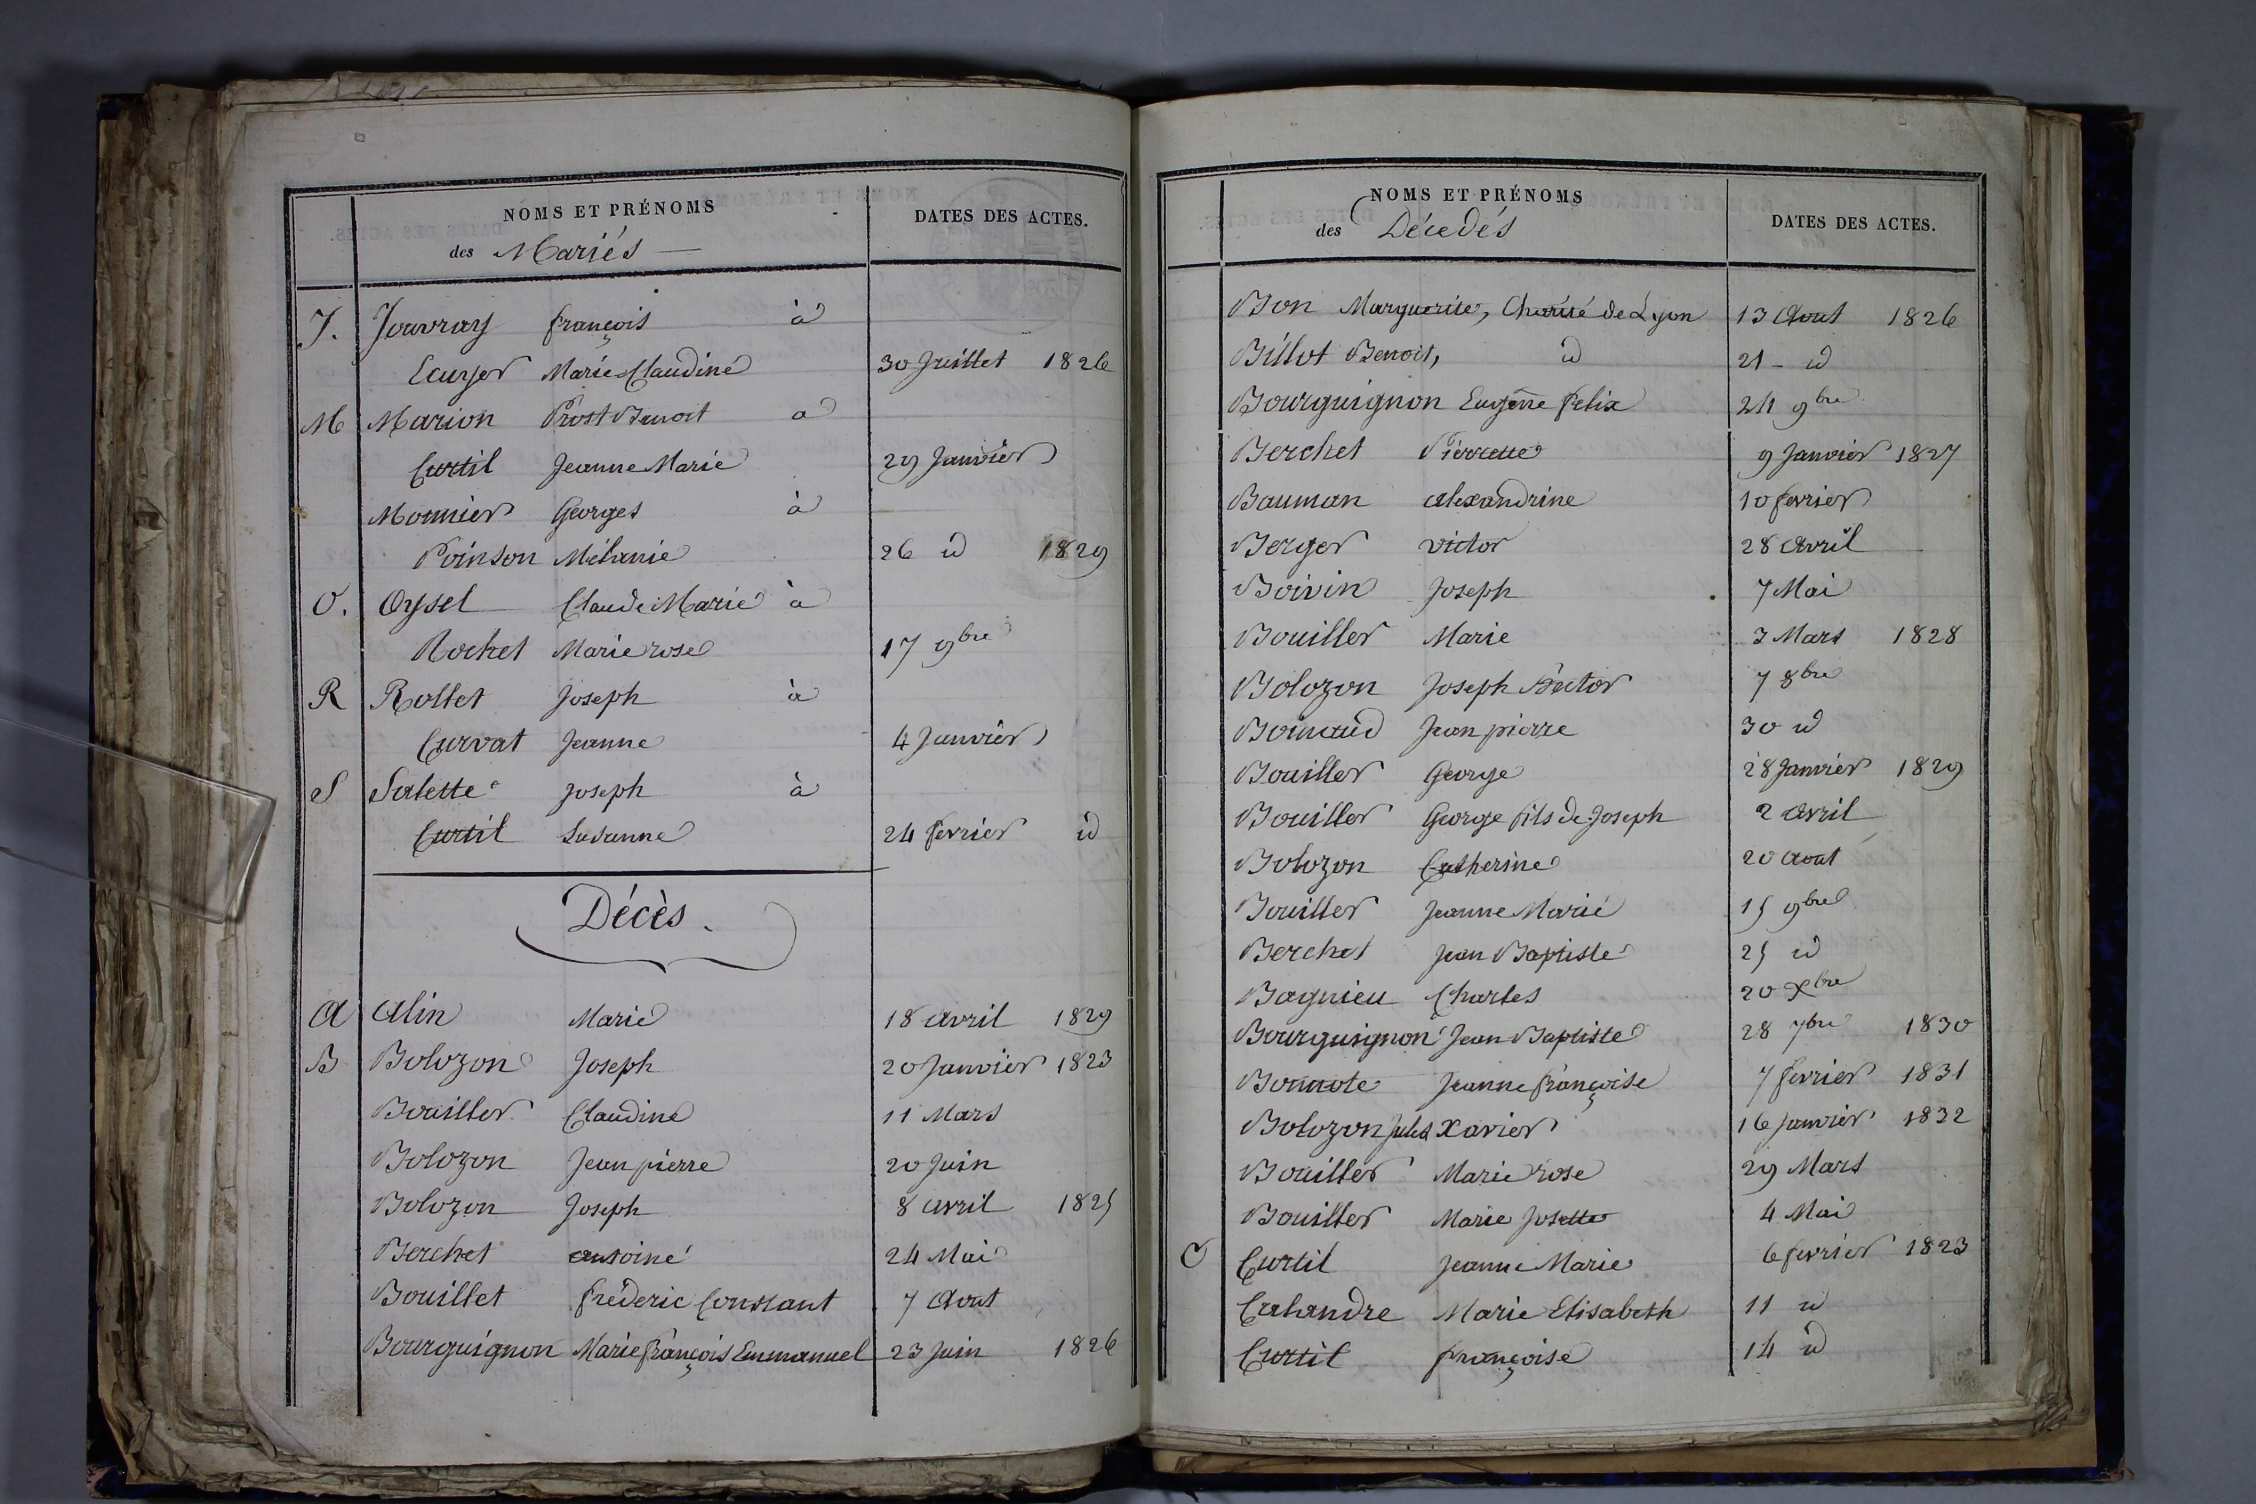 NOMS ET PRÉNOMS
des Mariés
DATES DES ACTES.
J. Jouvray françois à
Ecuyer Marie Claudine 30 Juillet 1826
M Marion Prost Benoit a
Curtil Jeanne Marie 29 Janvier
Monnier Georges à
Poinson Mélanie 26 id 1829
O. Oysel Claude Marie à
Rochet Marie rose 17 9bre
R Rollet Joseph à
Curvat Jeanne 4 Janvier
S Salette Joseph à
Curtil Susanne 24 fevrier id
Décès.
A Alin Marie 18 avril 1829
B Bolozon Joseph 20 Janvier 1823
Bouiller Claudine 11 Mars
Bolozon Jean pierre 20 Juin
Bolozon Joseph 8 avril 1825
Berchet antoine 24 Mai
Bouillet frédéric Constant 7 Aout
Bourguignon Marie françois Emmanuel 23 Juin 1826
NOMS ET PRÉNOMS
des Décedés
DATES DES ACTES.
Bon Marguerite, Charité de Lyon 13 Aout 1826
Billot Benoit, id 21 - id
Bourguignon Eugène Felix 24 9bre
Berchet Pierrette 9 Janvier 1827
Bauman alexandrine 10 fevrier
Berger victor 28 Avril
Boivin Joseph 7 Mai
Bouiller Marie 3 Mars 1828
Bolozon Joseph Hector 7 8bre
Boinaud Jean pierre 30 id
Bouiller George 28 Janvier 1829
Bouiller George fils de Joseph 2 Avril
Bolozon Catherine 20 Aout
Bouiller Jeanne Marie 15 9bre
Berchet Jean Baptiste 25 id
Bagnieu Charles 20 Xbre
Bourguignon Jean Baptiste 28 7bre 1830
Bonnote Jeanne françoise 7 fevrier 1831
Bolozon Jules Xavier 16 Janvier 1832
Bouiller Marie rose 29 Mars
Bouiller Marie Josette 4 Mai
C Curtil Jeanne Marie 6 fevrier 1823
Calandre Marie Elisabeth 11 id
Curtil françoise 14 id